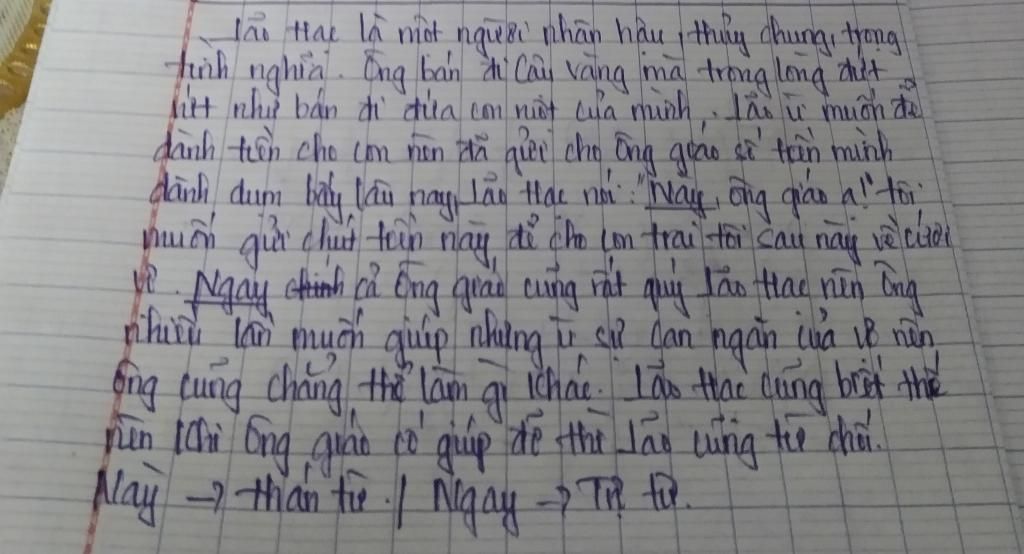 Lão Hạc là một người nhân hậu, thủy chung, trọng
tình nghĩa. Ông bán đi cậu vàng mà trong lòng day dứt
như bán đi đứa con ruột của mình. Lão vì muốn để
dành tiền cho con nên đã gửi cho ông giáo số tiền mình
dành dụm bấy lâu nay, Lão Hạc nói: "Này, ông giáo ạ!" tôi
muốn gửi chút tiền này để cho con trai tôi sau này về cưới
vợ. Ngay chính cả ông giáo cũng rất quý Lão Hạc nên ông
nhiều lần muốn giúp nhưng vì sự can ngăn của vợ nên
ông cũng chẳng thể làm gì khác. Lão Hạc cũng biết thế
nên khi ông giáo có giúp đỡ thì Lão cũng từ chối.
Này → thán từ. / Ngay → Trợ từ.